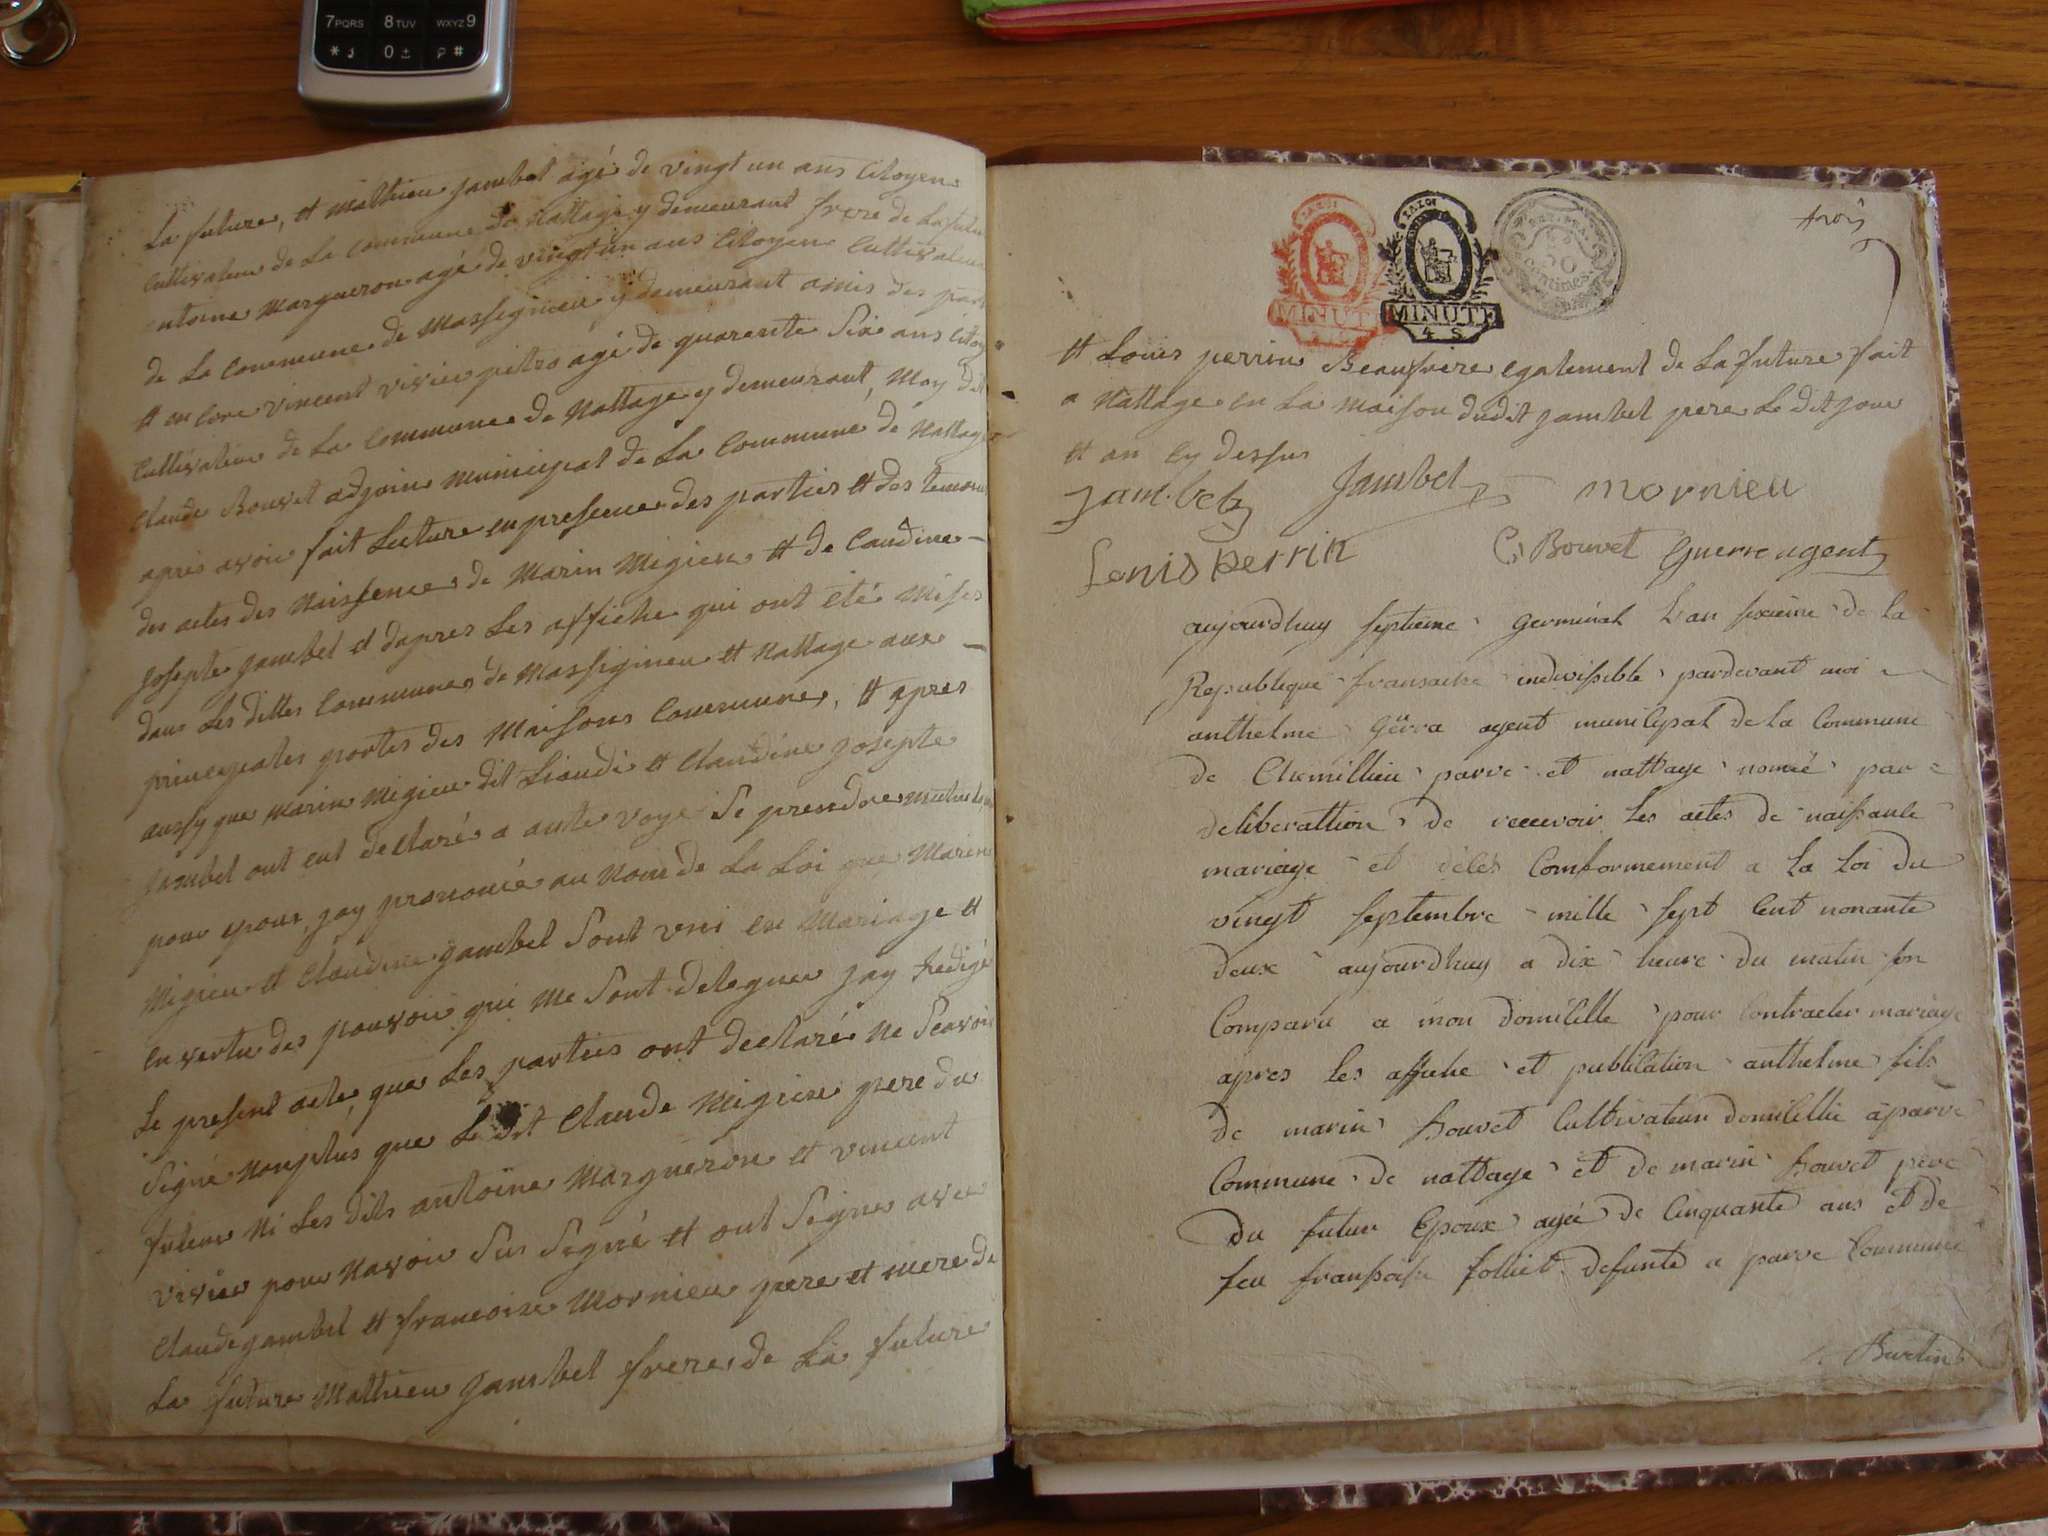 7PQRS 8TUV WXYZ9
* 0 ± #
La future, et mathieu jambet agé de vingt un ans Citoyen
Cultivateur de La Commune de Nattage y demeurant frere de La futu
entoine Margueron agé de vingt un ans Citoyen Cultivateur
de La Commune de Massignieu y demeurant amis des part
et encore vincent vivieu agé de quarente Six ans Citoy
Cultivateur de La Commune de Nattage y demeurant, Moy dit
Claude Bouvet adjoin Municipal de La Commune de Nattage
apres avoir fait Lecture en presence des parties et des temoins
des actes des Naissences de Marin Migieu et de Caudine
Josepte jambet et dapres Les affiche qui ont eté Mises
dans Les dittes Communes de Massignieu et Nattage aux
principales portes des Maisons Communes, et apres
aussy que Marin Migieu dit Liaudi et Claudine Josepte
jambet ont eut declaré a aute voye Se prendre
pour epoux, jay prononcé au Nom de La Loi que Marin
Migieu et Claudine jambet Sont uni en Mariage et
En vertu des pouvoir qui Me Sont deleguer jay Redigé
Le present acte, que Les parties ont declaré Ne Scavoir
Signé Nonplus que Le dit Claude Migieu pere du
futeur Ni Les dits antoine Margueron et vincent
vivieu pour Navoir Sus Signé et ont Signe avec
Claude jambet et francoise Mornieu pere et mere de
La future Mathieu jambet frere de La future
trois
MINUTE
MINUTE
4 S
50
centimes
et Louis perrin Beaufrere egalement de La future fait
a Nattage en La Maison dudit jambet pere Le dit jour
et an Cy dessus
jambet Jambet mornieu
Louis perrin C. Bouvet Guerre agent
aujourdhuy septieme germinal L'an sixieme de la
Republique fransaise indivissible pardevant moi
anthelme Gërra agent municipal de la Commune
de Chemillieu parve et nattage nomé par
deliberattion de recevoir les actes de naissance
mariage et décés Comformement a la Loi du
vingt septembre mille sept Cent nonante
deux aujourdhuy a dix heure du matin son
Comparu a mon domicille pour Contracter mariage
apres les affiche et publication anthelme fils
de marin bouvet Cultivateur domicillié a parve
Commune de nattage et de marin bouvet père
du futur Epoux agée de Cinquante ans et de
feu fransoise folliet defunte a parve Commune
Burtin